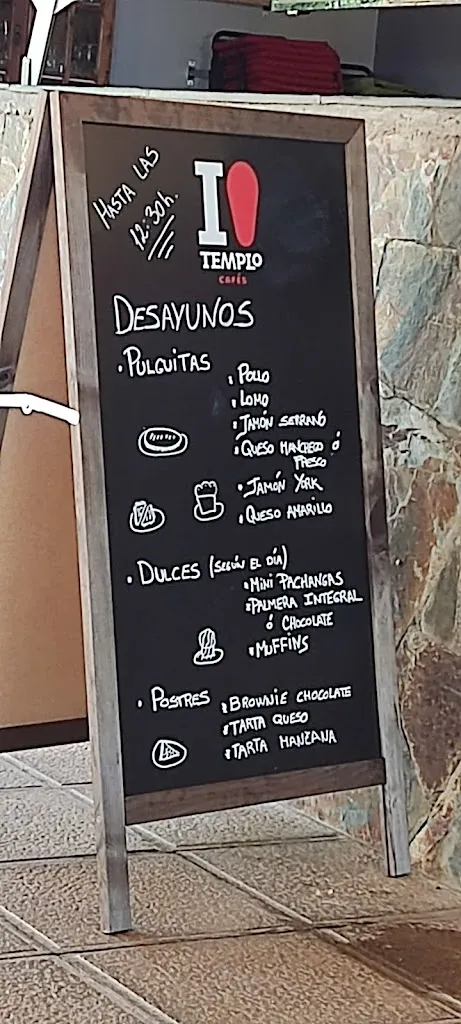 HASTA LAS
12:30h.
I
TEMPLO
CAFÉS
DESAYUNOS
• PULGUITAS
• POLLO
• LOMO
• JAMÓN SERRANO
• QUESO MANCHEGO Ó
FRESCO
• JAMÓN YORK
• QUESO AMARILLO
• DULCES (SEGÚN EL DÍA)
• MINI PACHANGAS
• PALMERA INTEGRAL
Ó CHOCOLATE
• MUFFINS
• POSTRES
• BROWNIE CHOCOLATE
• TARTA QUESO
• TARTA MANZANA